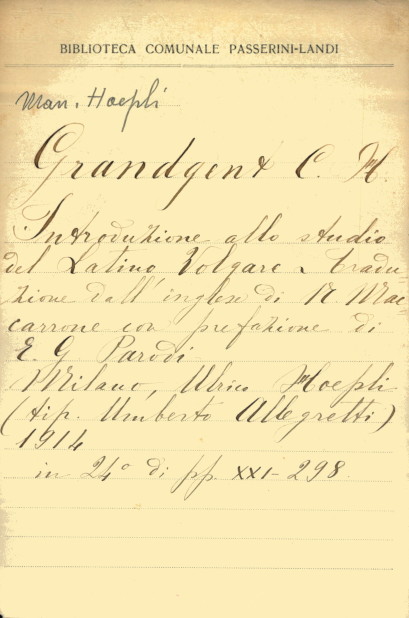 BIBLIOTECA COMUNALE PASSERINI-LANDI
Man. Hoepli
Grandgent C. H.
Introduzione allo studio
del Latino Volgare. Tradu
zione dall'inglese di N Mac
carrone con prefazione di
E. G Parodi
Milano, Ulrico Hoepli
(tip. Umberto Allegretti)
1914
in 24° di pp. XXI-298